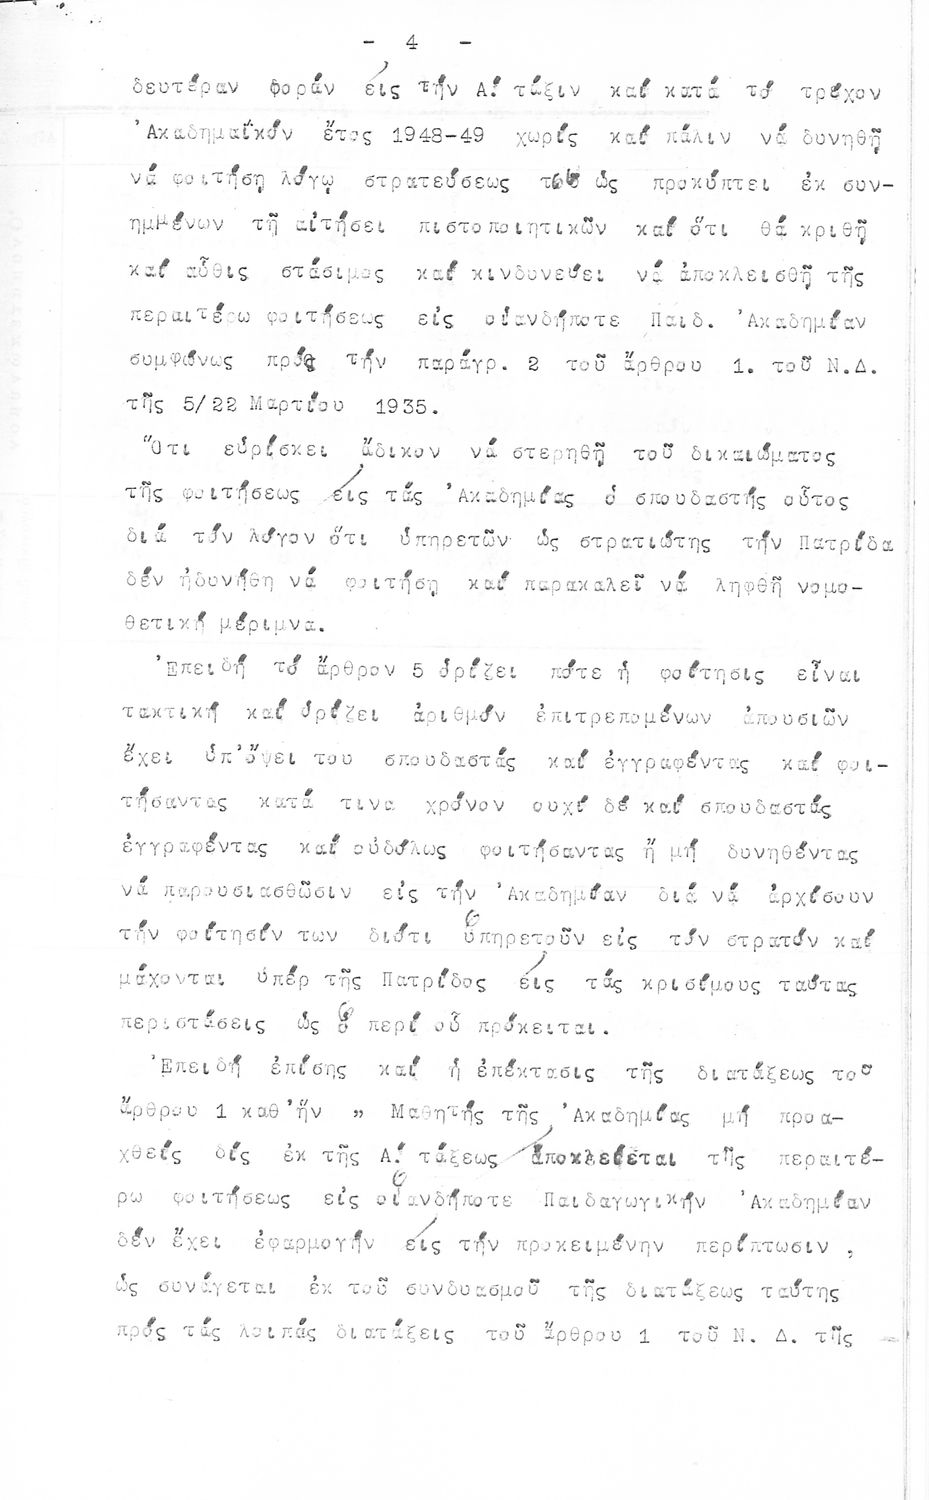 - 4 -
δευτέραν φοράν εἰς τήν Α! τάξιν καί κατά τό τρέχον
'Ακαδημαϊκόν ἔτος 1948-49 χωρίς καί πάλιν νά δυνηθῇ
νά φοιτήσῃ λόγῳ στρατεύσεως τοῦ ὡς προκύπτει ἐκ συν-
ημμένων τῇ αἰτήσει πιστοποιητικῶν καί ὅτι θά κριθῇ
καί αὖθις στάσιμος καί κινδυνεύει νά ἀποκλεισθῇ τῆς
περαιτέρω φοιτήσεως εἰς οἱανδήποτε Παιδ. 'Ακαδημίαν
συμφώνως πρός τήν παράγρ. 2 τοῦ ἄρθρου 1. τοῦ Ν.Δ.
τῆς 5/22 Μαρτίου 1935.
"Οτι εὑρίσκει ἄδικον νά στερηθῇ τοῦ δικαιώματος
τῆς φοιτήσεως εἰς τάς 'Ακαδημίας ὁ σπουδαστής οὗτος
διά τόν λόγον ὅτι ὑπηρετῶν ὡς στρατιώτης τήν Πατρίδα
δέν ἠδυνήθη νά φοιτήσῃ καί παρακαλεῖ νά ληφθῇ νομο-
θετική μέριμνα.
'Επειδή τό ἄρθρον 5 ὁρίζει πότε ἡ φοίτησις εἶναι
τακτική καί ὁρίζει ἀριθμόν ἐπιτρεπομένων ἀπουσιῶν
ἔχει ὑπ'ὄψει του σπουδαστάς καί ἐγγραφέντας καί φοι-
τήσαντας κατά τινα χρόνον ουχί δέ καί σπουδαστάς
ἐγγραφέντας καί οὐδόλως φοιτήσαντας ἤ μή δυνηθέντας
νά παρουσιασθῶσιν εἰς τήν 'Ακαδημίαν διά νά ἀρχίσουν
τήν φοίτησίν των διότι ὑπηρετοῦν εἰς τόν στρατόν καί
μάχονται ὑπέρ τῆς Πατρίδος εἰς τάς κρισίμους ταύτας
περιστάσεις ὡς ὁ περί οὗ πρόκειται.
'Επειδή ἐπίσης καί ἡ ἐπέκτασις τῆς διατάξεως τοῦ
ἄρθρου 1 καθ'ἥν " Μαθητής τῆς 'Ακαδημίας μή προα-
χθείς δίς ἐκ τῆς Α! τάξεως ἀποκλείεται τῆς περαιτέ-
ρω φοιτήσεως εἰς οἱανδήποτε Παιδαγωγικήν 'Ακαδημίαν
δέν ἔχει ἐφαρμογήν εἰς τήν προκειμένην περίπτωσιν ,
ὡς συνάγεται ἐκ τοῦ συνδυασμοῦ τῆς διατάξεως ταύτης
πρός τάς λοιπάς διατάξεις τοῦ ἄρθρου 1 τοῦ Ν. Δ. τῆς